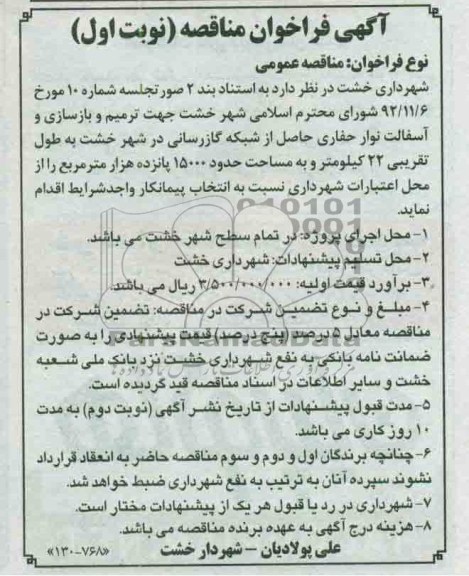 آگهی فراخوان مناقصه (نوبت اول)
نوع فراخوان: مناقصه عمومی
شهرداری خشت در نظر دارد به استناد بند ۲ صورتجلسه شماره ۱۰ مورخ
۹۲/۱۱/۶ شورای محترم اسلامی شهر خشت جهت ترمیم و بازسازی و
آسفالت نوار حفاری حاصل از شبکه گازرسانی در شهر خشت به طول
تقریبی ۲۲ کیلومتر و به مساحت حدود ۱۵۰۰۰ پانزده هزار مترمربع را از
محل اعتبارات شهرداری نسبت به انتخاب پیمانکار واجدشرایط اقدام
نماید.
۱- محل اجرای پروژه: در تمام سطح شهر خشت می باشد.
۲- محل تسلیم پیشنهادات: شهرداری خشت
۳- برآورد قیمت اولیه: ۳/۵۰۰/۰۰۰/۰۰۰ ریال می باشد.
۴- مبلغ و نوع تضمین شرکت در مناقصه: تضمین شرکت در
مناقصه معادل ۵ درصد (پنج درصد) قیمت پیشنهادی را به صورت
ضمانت نامه بانکی به نفع شهرداری خشت نزد بانک ملی شعبه
خشت و سایر اطلاعات در اسناد مناقصه قید گردیده است.
۵- مدت قبول پیشنهادات از تاریخ نشر آگهی (نوبت دوم) به مدت
۱۰ روز کاری می باشد.
۶- چنانچه برندگان اول و دوم و سوم مناقصه حاضر به انعقاد قرارداد
نشوند سپرده آنان به ترتیب به نفع شهرداری ضبط خواهد شد.
۷- شهرداری در رد یا قبول هر یک از پیشنهادات مختار است.
۸- هزینه درج آگهی به عهده برنده مناقصه می باشد.
علی پولادیان - شهردار خشت
«۱۳۰-۷۶۸»
ParsNamadData